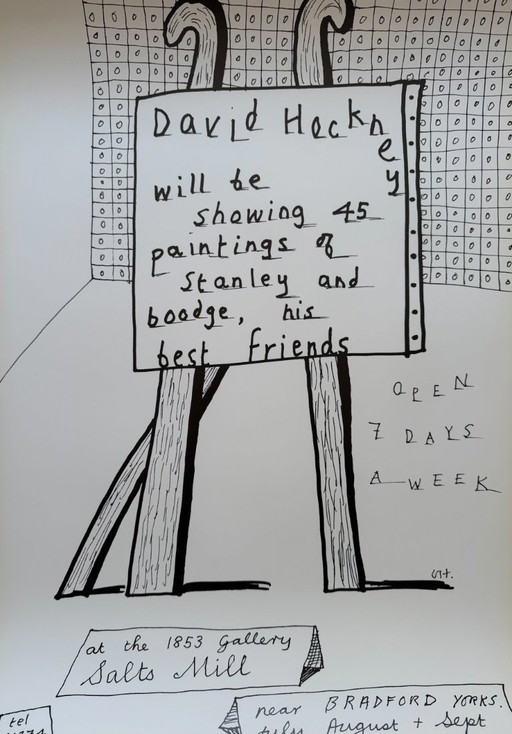 David Hockney
will be
showing 45
paintings of
Stanley and
boodge, his
best friends
OPEN
7 DAYS
A WEEK
at the 1853 Gallery
Salts Mill
near BRADFORD YORKS.
July August + Sept
tel